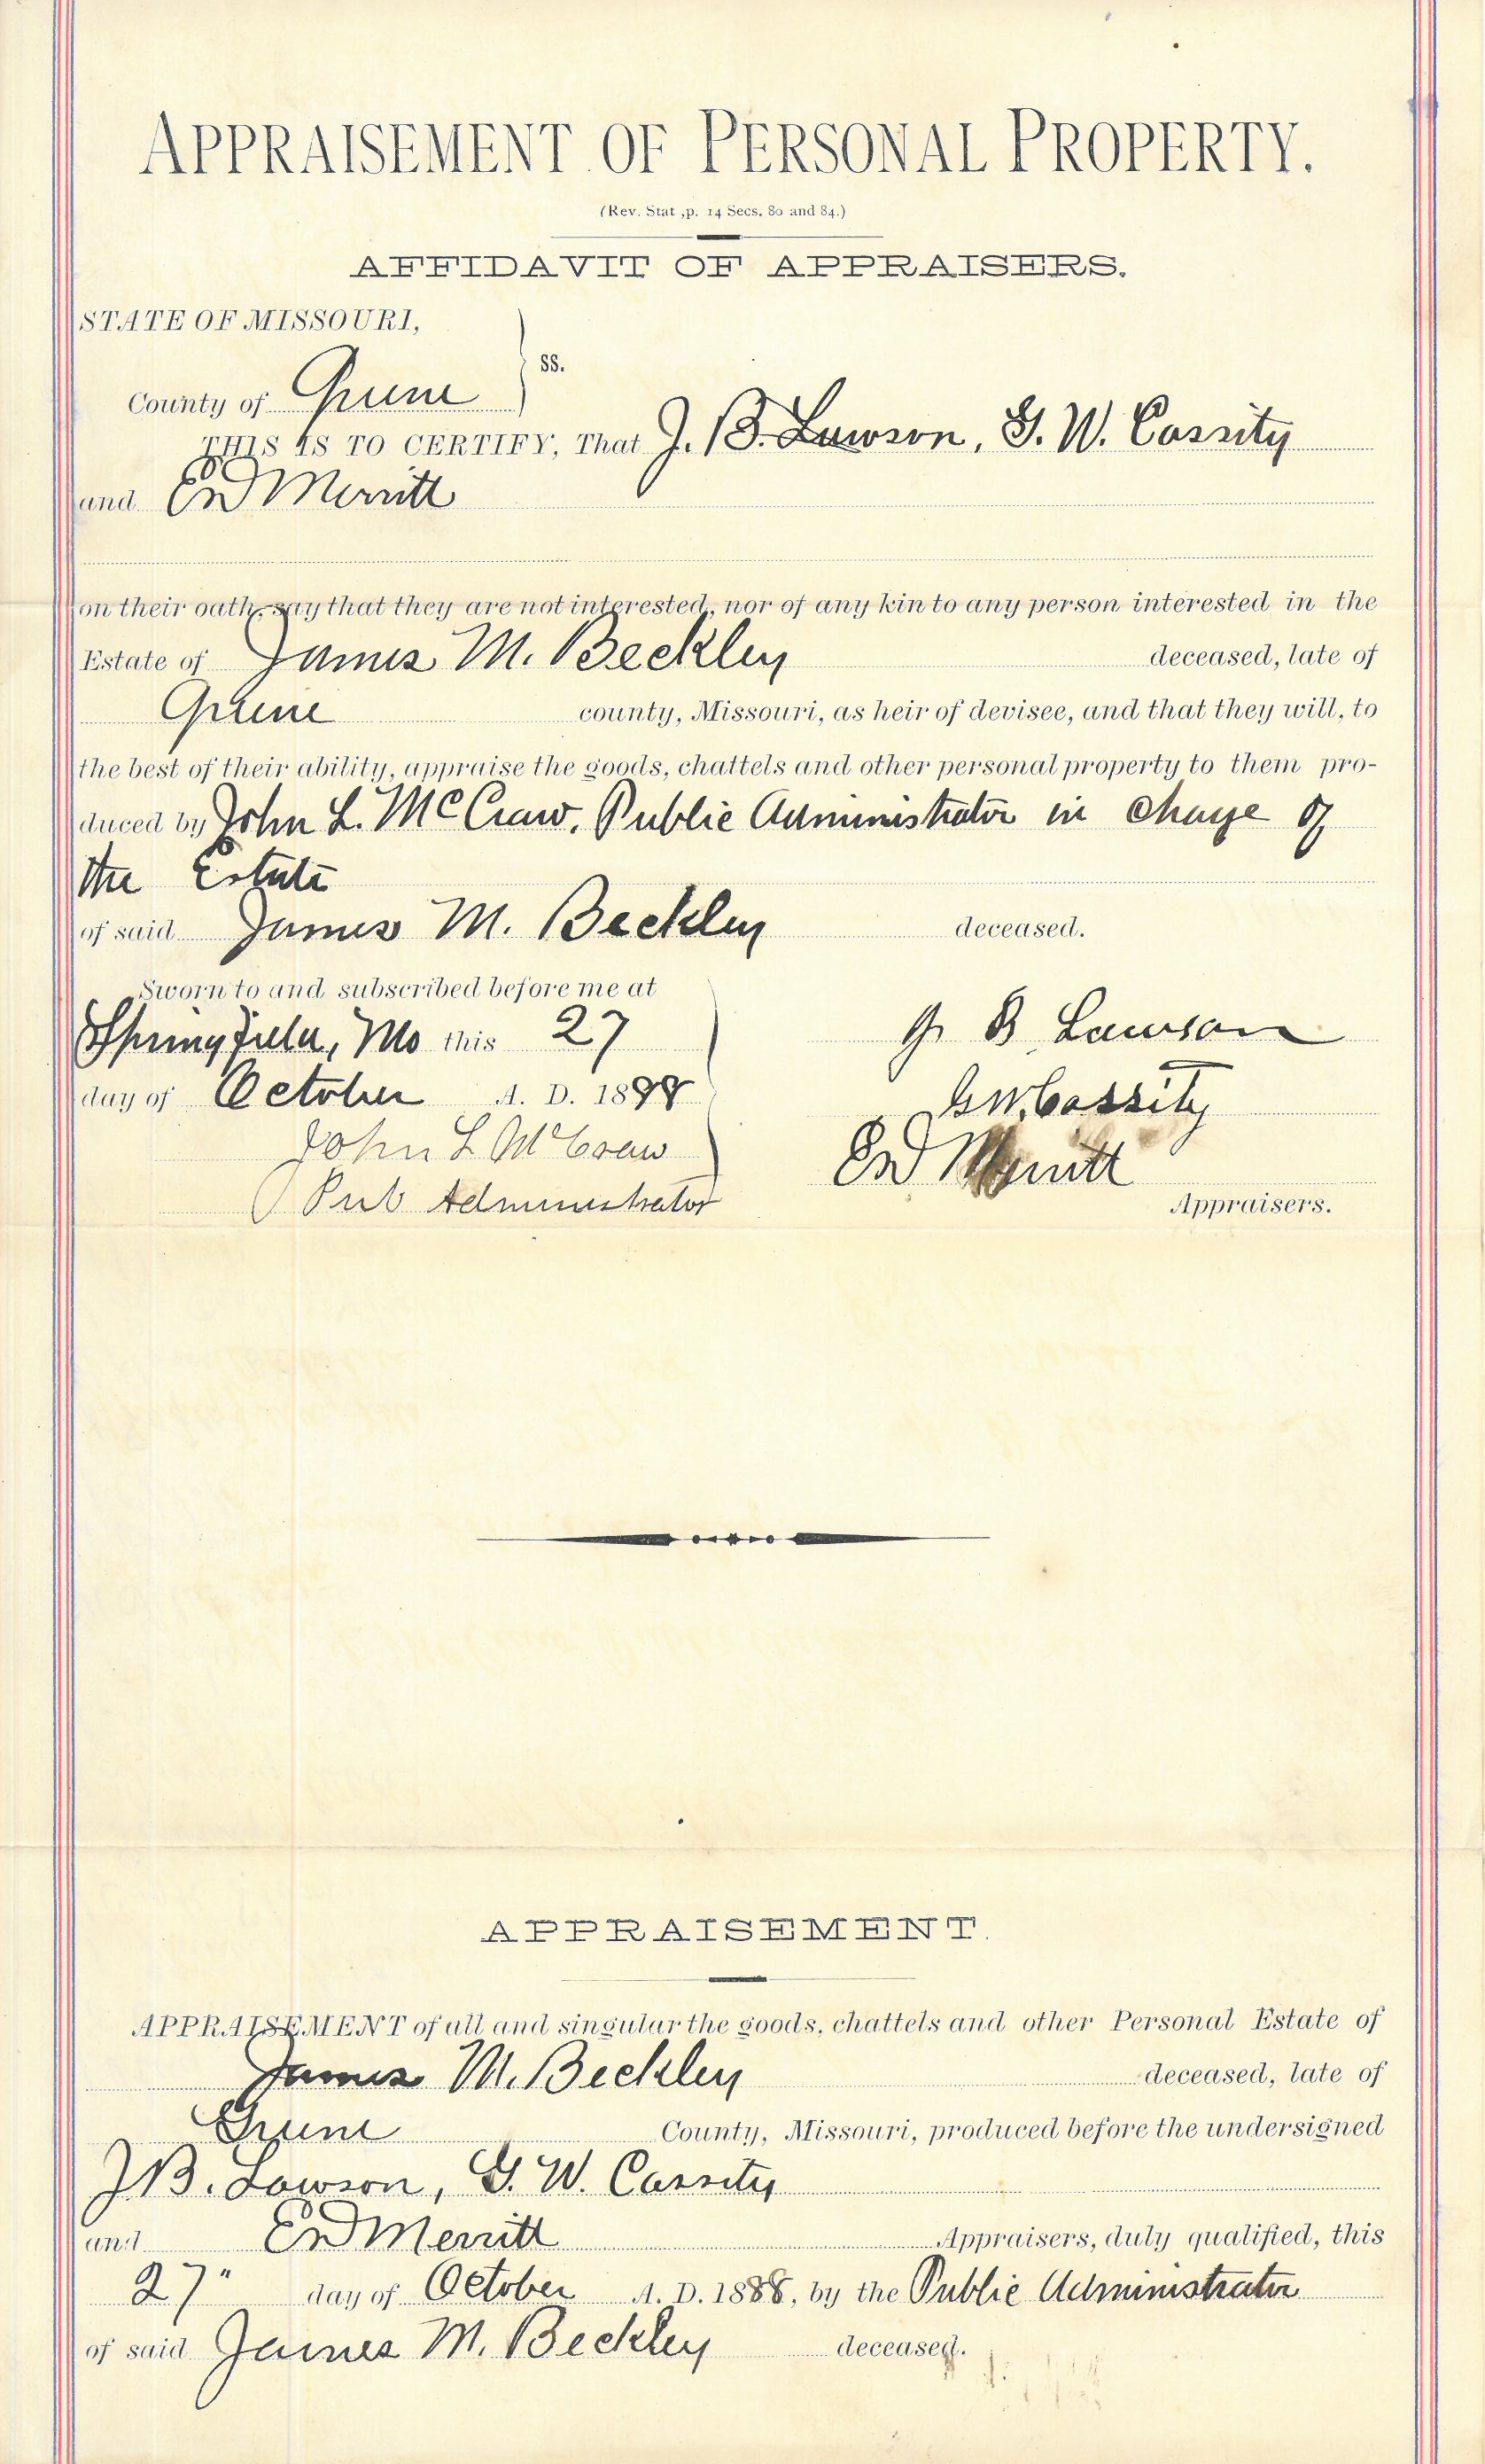 APPRAISEMENT OF PERSONAL PROPERTY.
(Rev. Stat ,p. 14 Secs. 80 and 84.)
AFFIDAVIT OF APPRAISERS.
STATE OF MISSOURI,
ss.
County of Greene
THIS IS TO CERTIFY, That J. B. Lawson, G. W. Cassity
and Ed Merritt
on their oath, say that they are not interested, nor of any kin to any person interested in the
Estate of James M. Beckley deceased, late of
Greene county, Missouri, as heir of devisee, and that they will, to
the best of their ability, appraise the goods, chattels and other personal property to them pro-
duced by John L. McCraw, Public Administrator in charge of
the Estate
of said James M. Beckley deceased.
Sworn to and subscribed before me at
Springfield, Mo this 27
day of October A. D. 1888
John L McCraw
Pub Administrator
J B Lawson
G W. Cassity
Ed Merritt
Appraisers.
APPRAISEMENT.
APPRAISEMENT of all and singular the goods, chattels and other Personal Estate of
James M. Beckley deceased, late of
Greene County, Missouri, produced before the undersigned
J B. Lawson, G. W. Cassity
and Ed Merritt Appraisers, duly qualified, this
27" day of October A. D. 1888, by the Public Administrator
of said James M. Beckley deceased.